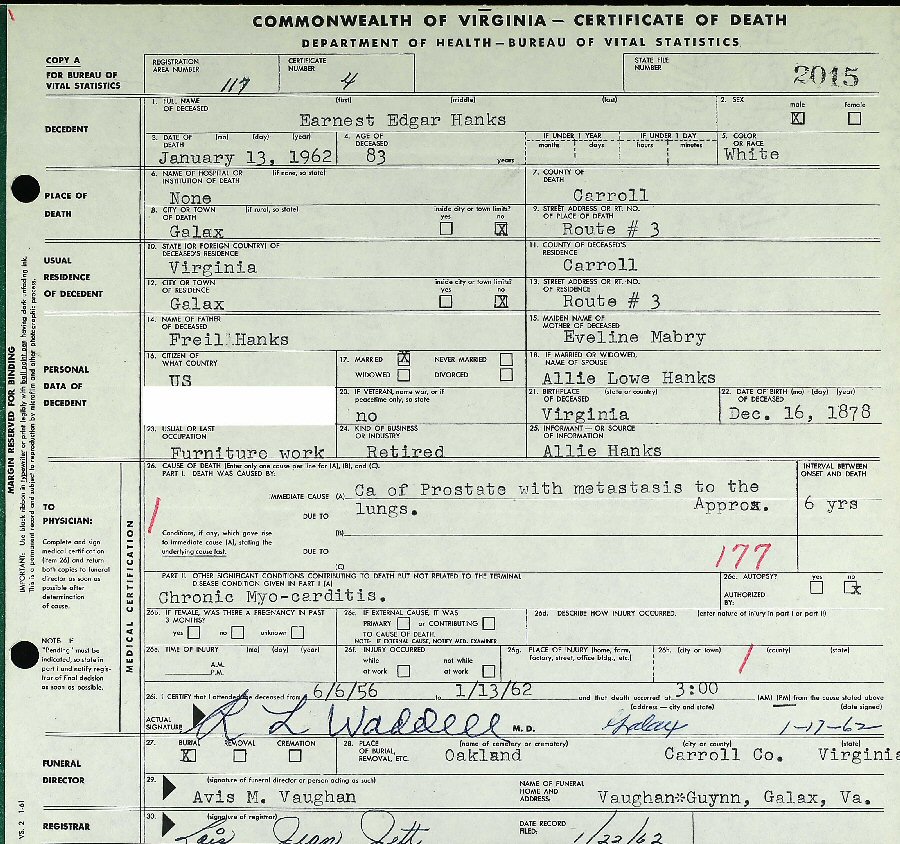 COMMONWEALTH OF VIRGINIA — CERTIFICATE OF DEATH
DEPARTMENT OF HEALTH—BUREAU OF VITAL STATISTICS
COPY A
FOR BUREAU OF
VITAL STATISTICS
REGISTRATION
AREA NUMBER 117
CERTIFICATE
NUMBER 4
STATE FILE
NUMBER 2015
DECEDENT
1. FULL NAME (first) (middle) (last)
OF DECEASED
Earnest Edgar Hanks
2. SEX
male female
X
3. DATE OF (mo) (day) (year)
DEATH
January 13, 1962
4. AGE OF
DECEASED
83 years
IF UNDER 1 YEAR
months days
IF UNDER 1 DAY
hours minutes
5. COLOR
OR RACE
White
PLACE OF
DEATH
6. NAME OF HOSPITAL OR (if none, so state)
INSTITUTION OF DEATH
None
7. COUNTY OF
DEATH
Carroll
8. CITY OR TOWN (if rural, so state)
OF DEATH
Galax
inside city or town limits?
yes no
X
9. STREET ADDRESS OR RT. NO.
OF PLACE OF DEATH
Route # 3
USUAL
RESIDENCE
OF DECEDENT
10. STATE (OR FOREIGN COUNTRY) OF
DECEASED'S RESIDENCE
Virginia
11. COUNTY OF DECEASED'S
RESIDENCE
Carroll
12. CITY OR TOWN
OF RESIDENCE
Galax
inside city or town limits?
yes no
X
13. STREET ADDRESS OR RT. NO.
OF RESIDENCE
Route # 3
PERSONAL
DATA OF
DECEDENT
14. NAME OF FATHER
OF DECEASED
Freil Hanks
15. MAIDEN NAME OF
MOTHER OF DECEASED
Eveline Mabry
16. CITIZEN OF
WHAT COUNTRY
US
17. MARRIED X NEVER MARRIED
WIDOWED DIVORCED
18. IF MARRIED OR WIDOWED,
NAME OF SPOUSE
Allie Lowe Hanks
20. IF VETERAN, name war, or if
peacetime only, so state
no
21. BIRTHPLACE (state or country)
OF DECEASED
Virginia
22. DATE OF BIRTH (mo) (day) (year)
OF DECEASED
Dec. 16, 1878
23. USUAL OR LAST
OCCUPATION
Furniture work
24. KIND OF BUSINESS
OR INDUSTRY
Retired
25. INFORMANT — OR SOURCE
OF INFORMATION
Allie Hanks
MARGIN RESERVED FOR BINDING
IMPORTANT: Use black ribbon in typewriter or print legibly with ball point pen having dark unfading ink.
This is a permanent record and subject to reproduction by microfilm and other photographic process.
TO
PHYSICIAN:
Complete and sign
medical certification
(item 26) and return
both copies to funeral
director as soon as
possible after
determination
of cause.
NOTE: IF
"Pending" must be
indicated, so state in
part I and notify regis-
trar of final decision
as soon as possible.
MEDICAL CERTIFICATION
26. CAUSE OF DEATH (Enter only one cause per line for (A), (B), and (C).
PART I. DEATH WAS CAUSED BY:
INTERVAL BETWEEN
ONSET AND DEATH
IMMEDIATE CAUSE (A) Ca of Prostate with metastasis to the
lungs. Approx. 6 yrs
DUE TO
(B)
Conditions, if any, which gave rise
to immediate cause (A), stating the
underlying cause last.
DUE TO
(C)
177
PART II. OTHER SIGNIFICANT CONDITIONS CONTRIBUTING TO DEATH BUT NOT RELATED TO THE TERMINAL
DISEASE CONDITION GIVEN IN PART I (A)
Chronic Myo-carditis.
26a. AUTOPSY? yes no
AUTHORIZED
BY:
X
26b. IF FEMALE, WAS THERE A PREGNANCY IN PAST
3 MONTHS?
yes no unknown
26c. IF EXTERNAL CAUSE, IT WAS
PRIMARY or CONTRIBUTING
TO CAUSE OF DEATH
NOTE: IF EXTERNAL CAUSE, NOTIFY MED. EXAMINER
26d. DESCRIBE HOW INJURY OCCURRED. (enter nature of injury in part I or part II)
26e. TIME OF INJURY (mo) (day) (year)
A.M.
P.M.
26f. INJURY OCCURRED
while at work
not while at work
26g. PLACE OF INJURY (home, farm,
factory, street, office bldg., etc.)
26h. (city or town) (county) (state)
26i. I CERTIFY that I attended the deceased from 6/6/56 to 1/13/62 and that death occurred at 3:00 (AM) (PM) from the cause stated above
(address — city and state) (date signed)
ACTUAL
SIGNATURE R L Waddell M.D. Galax 1-17-62
FUNERAL
DIRECTOR
27. BURIAL REMOVAL CREMATION
X
28. PLACE
OF BURIAL,
REMOVAL, ETC.
(name of cemetery or crematory) (city or county) (state)
Oakland Carroll Co. Virginia
29. (signature of funeral director or person acting as such)
Avis M. Vaughan
NAME OF FUNERAL
HOME AND
ADDRESS
Vaughan*Guynn, Galax, Va.
REGISTRAR
30. (signature of registrar)
Lois Jean Jett
DATE RECORD
FILED:
1/22/62
VS. 2 1-61